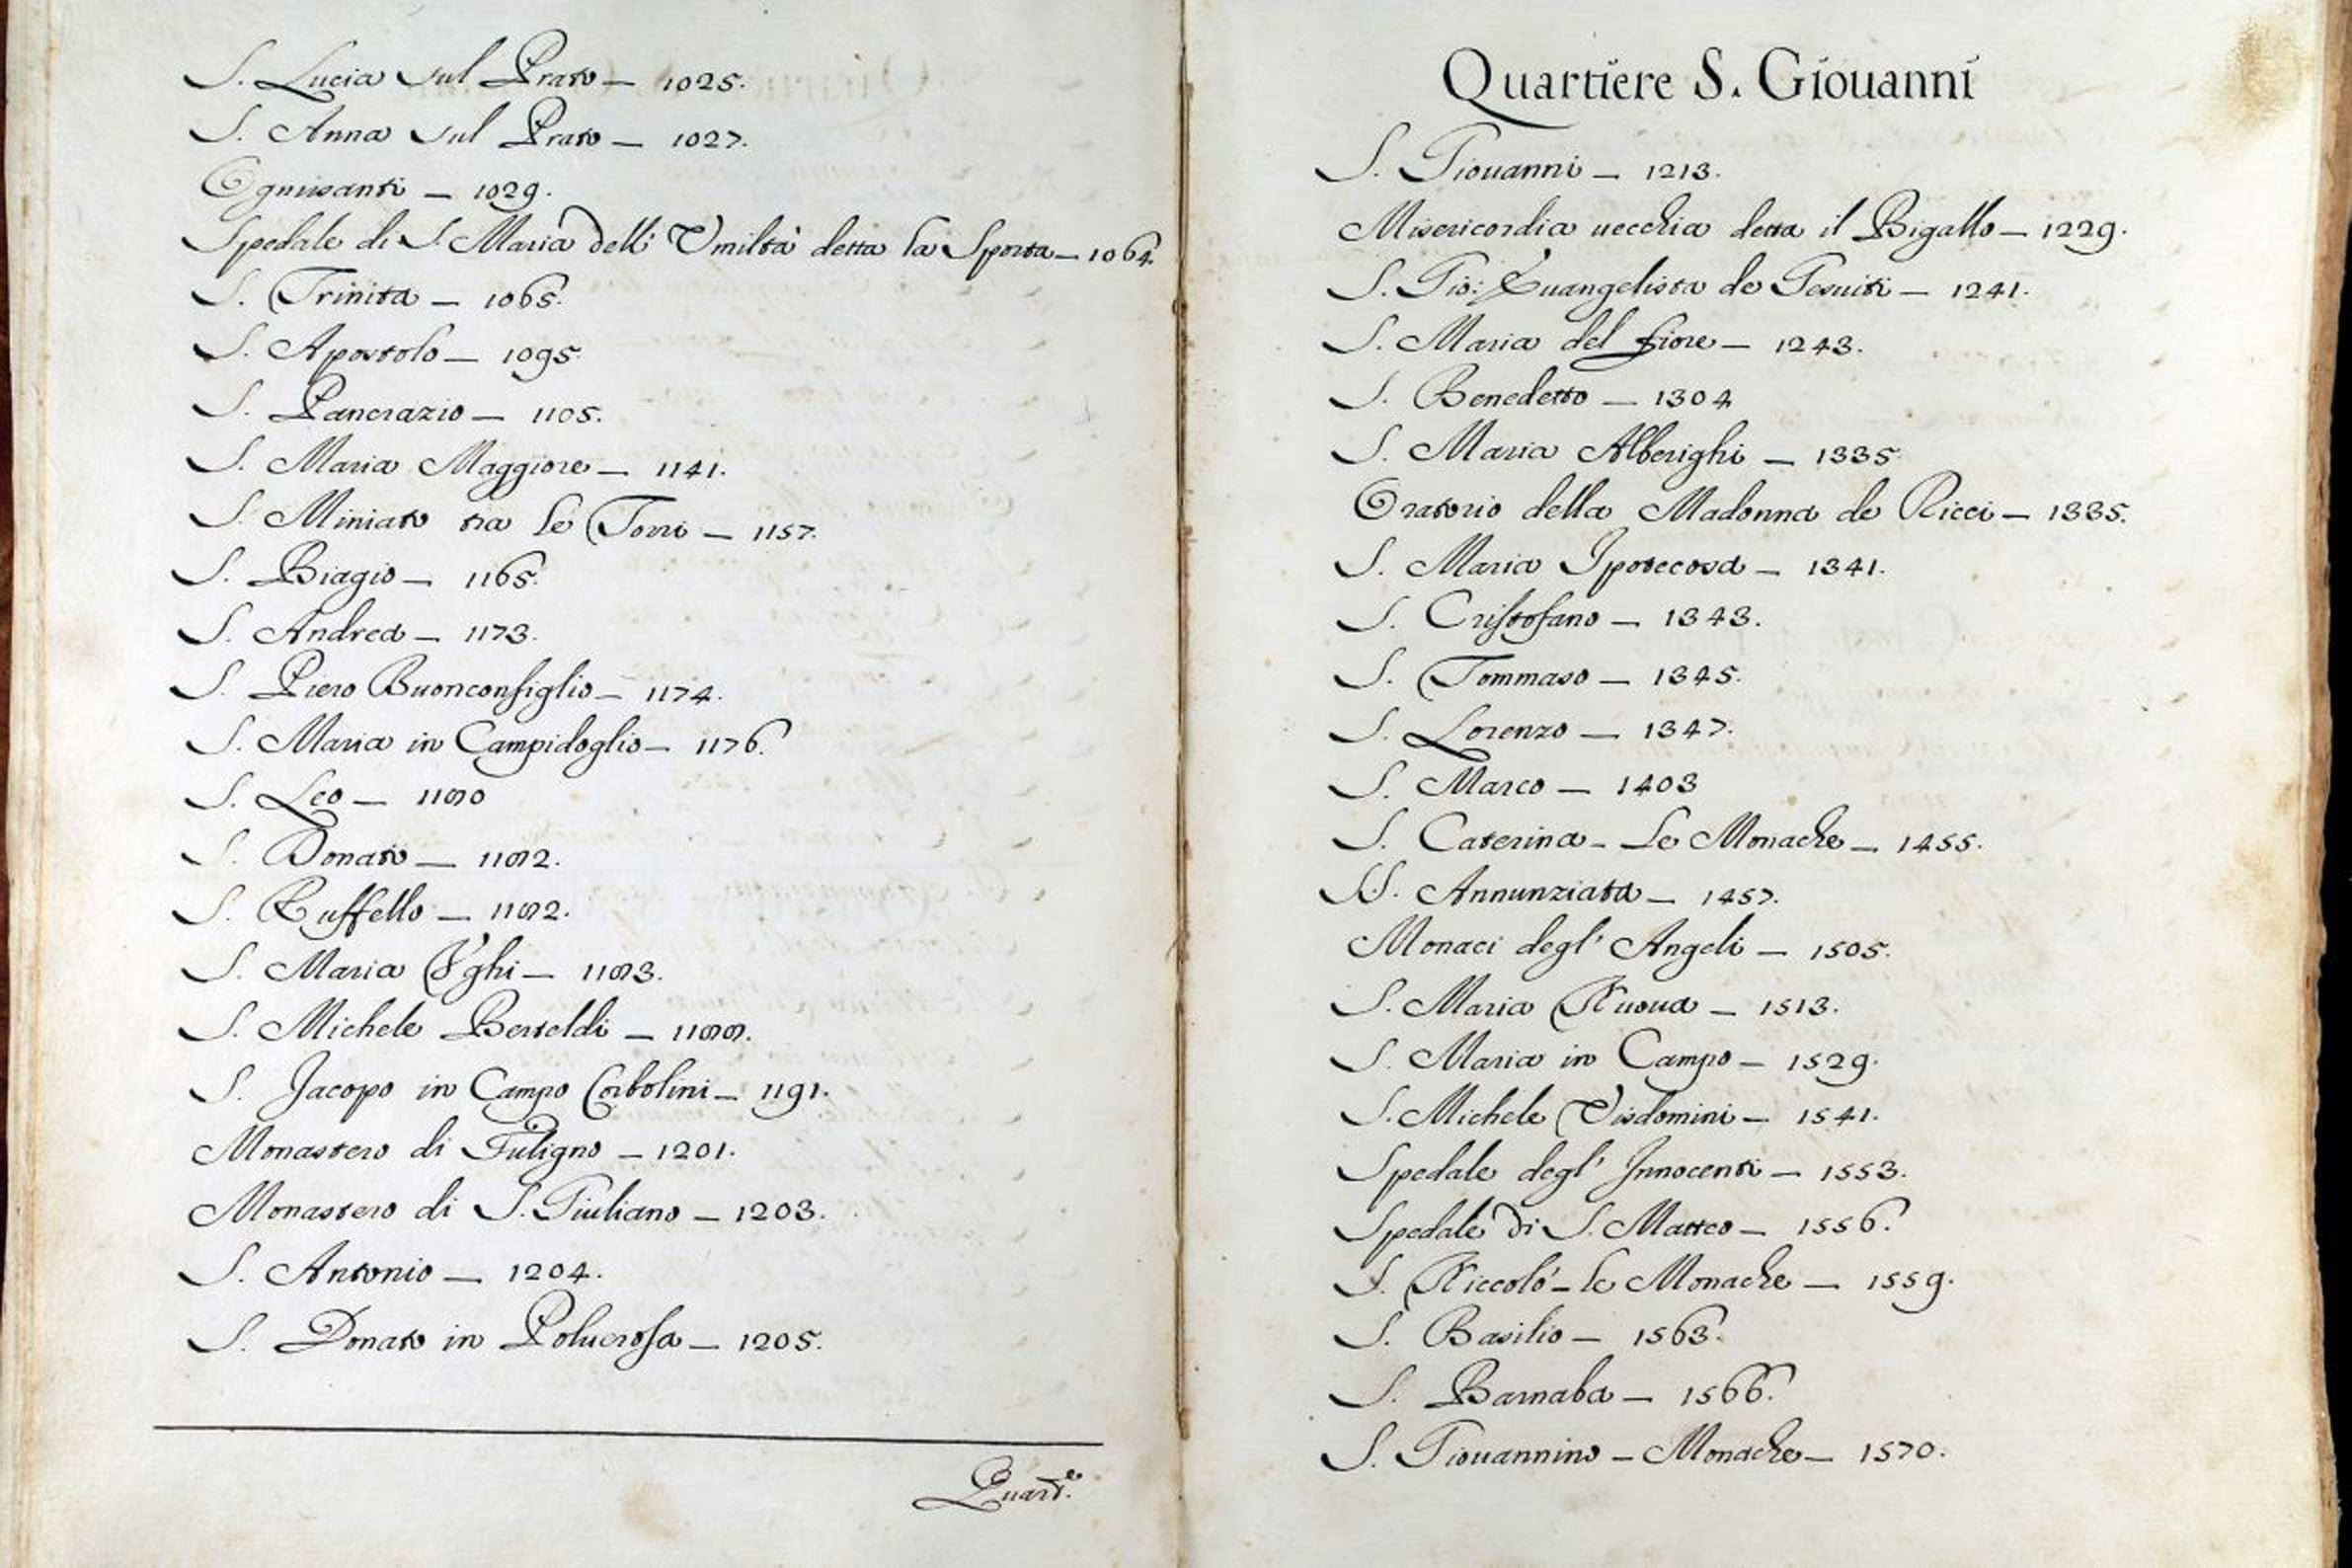 S. Lucia sul Prato — 1025.
S. Anna sul Prato — 1027.
Ognisanti — 1029.
Spedale di S. Maria dell' Vmiltà detta la Sporta — 1064.
S. Trinita — 1065.
S. Apostolo — 1095.
S. Pancrazio — 1105.
S. Maria Maggiore — 1141.
S. Miniato tra le Torri — 1157.
S. Biagio — 1165.
S. Andrea — 1173.
S. Piero Buonconsiglio — 1174.
S. Maria in Campidoglio — 1176.
S. Leo — 1180
S. Donato — 1182.
S. Ruffello — 1182.
S. Maria Vghi — 1183.
S. Michele Berteldi — 1188.
S. Jacopo in Campo Corbolini — 1191.
Monastero di Fuligno — 1201.
Monastero di S. Giuliano — 1203.
S. Antonio — 1204.
S. Donato in Poluerosa — 1205.
Quart.e
Quartiere S. Giouanni
S. Giouanni — 1213.
Misericordia uecchia detta il Bigallo — 1229.
S. Gio: Euangelista de Gesuiti — 1241.
S. Maria del fiore — 1243.
S. Benedetto — 1304
S. Maria Alberighi — 1335
Oratorio della Madonna de Ricci — 1335.
S. Maria Ipotecosa — 1341.
S. Cristofano — 1343.
S. Tommaso — 1345.
S. Lorenzo — 1347.
S. Marco — 1403
S. Caterina - Le Monache — 1455.
SS. Annunziata — 1457.
Monaci degl' Angeli — 1505.
S. Maria Nuoua — 1513.
S. Maria in Campo — 1529.
S. Michele Visdomini — 1541.
Spedale degl' Innocenti — 1553.
Spedale di S. Matteo — 1556.
S. Niccolò - le Monache — 1559.
S. Basilio — 1563.
S. Barnaba — 1566.
S. Giouannino - Monache — 1570.